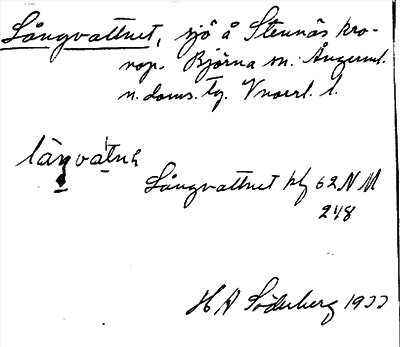 Långvattnet, sjö å Stennäs kro-
nop. Björna sn. Ångerml.
n. doms. tg. Vnorrl. l.
långvatnə
Långvattnet kbl 62 NM
248
H A Söderberg 1933